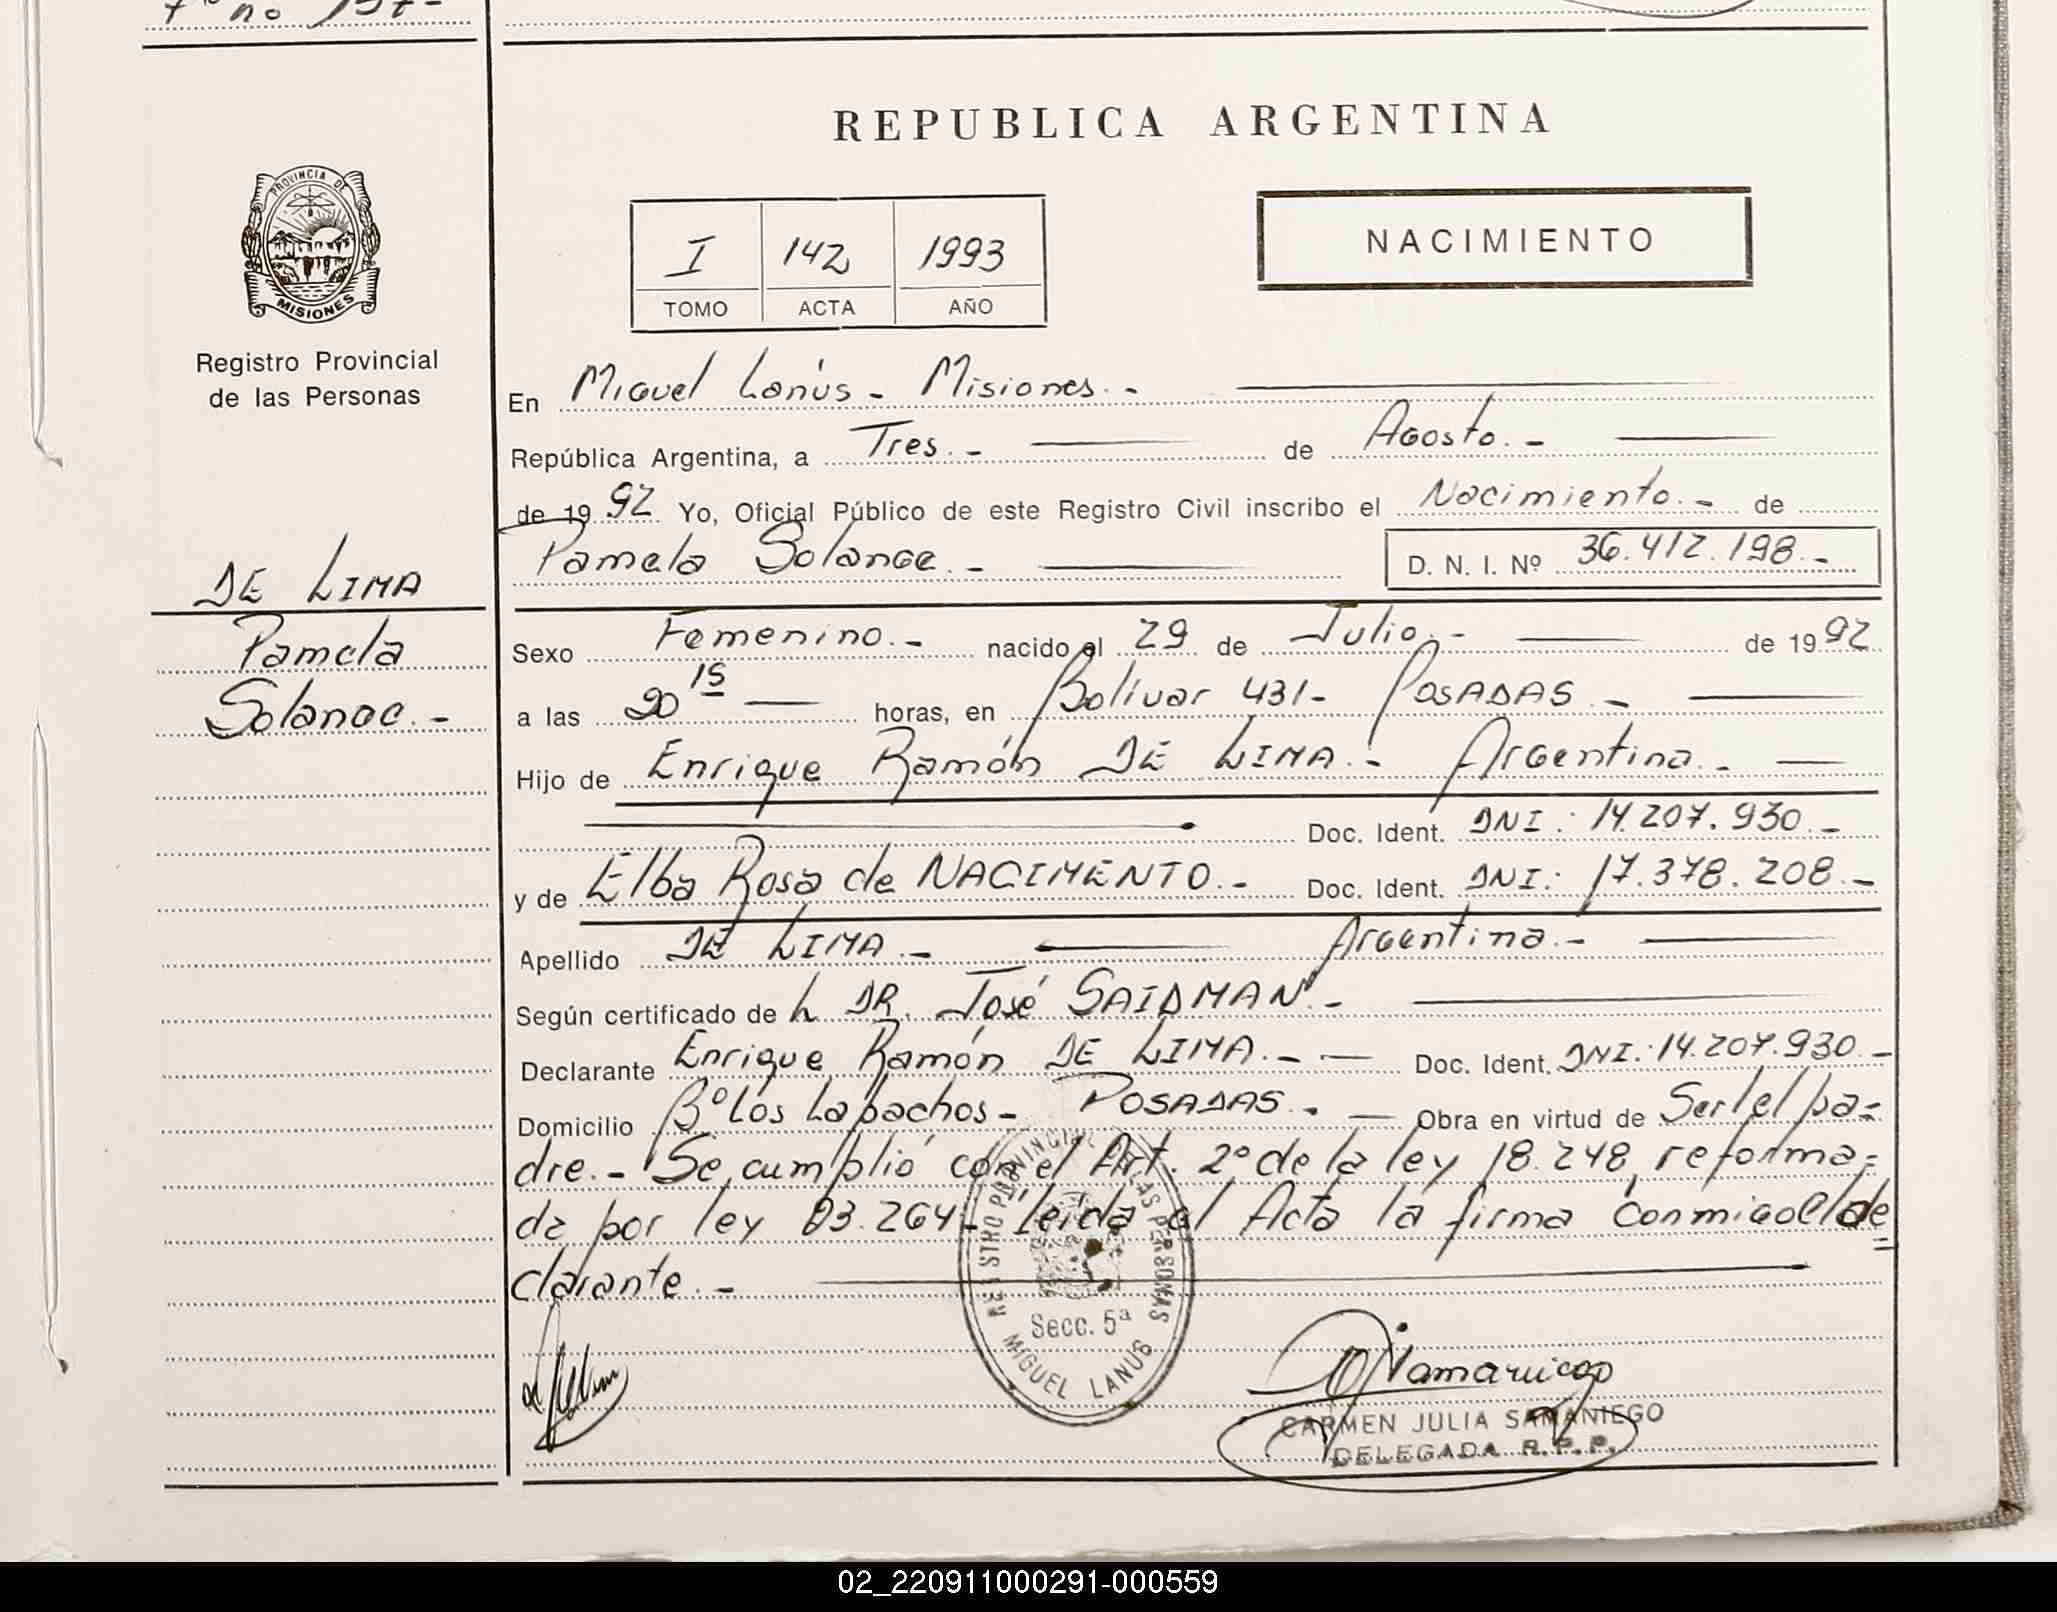 REPUBLICA ARGENTINA
PROVINCIA DE
MISIONES
Registro Provincial
de las Personas
I 142 1993
TOMO ACTA AÑO
NACIMIENTO
En Miguel Lanús - Misiones.-
República Argentina, a Tres.- de Agosto.-
de 1992 Yo, Oficial Público de este Registro Civil inscribo el Nacimiento.- de
Pamela Solange.- D. N. I. Nº 36.412.198.-
DE LIMA
Pamela
Solange.-
Sexo Femenino.- nacido el 29 de Julio.- de 1992
a las 20 15 horas, en Bolívar 431- POSADAS.-
Hijo de Enrique Ramón DE LIMA.- Argentina.-
Doc. Ident. DNI: 14.207.930.-
y de Elba Rosa de NACIMENTO.- Doc. Ident. DNI: 17.378.208.-
Apellido DE LIMA.- Argentina.-
Según certificado de L DR. José SAIDMAN.-
Declarante Enrique Ramón DE LIMA.- Doc. Ident. DNI: 14.207.930.-
Domicilio Bº Los Lapachos- POSADAS.- Obra en virtud de Ser el pa=
dre.- Se cumplió con el Art. 2º de la ley 18.248, reforma=
da por ley 23.264- Leída el Acta la firma conmigo el de=
clarante.-
REGISTRO PROVINCIAL DE LAS PERSONAS
Secc. 5ª
MIGUEL LANUS
CARMEN JULIA SAMANIEGO
DELEGADA R.P.P.
02_220911000291-000559